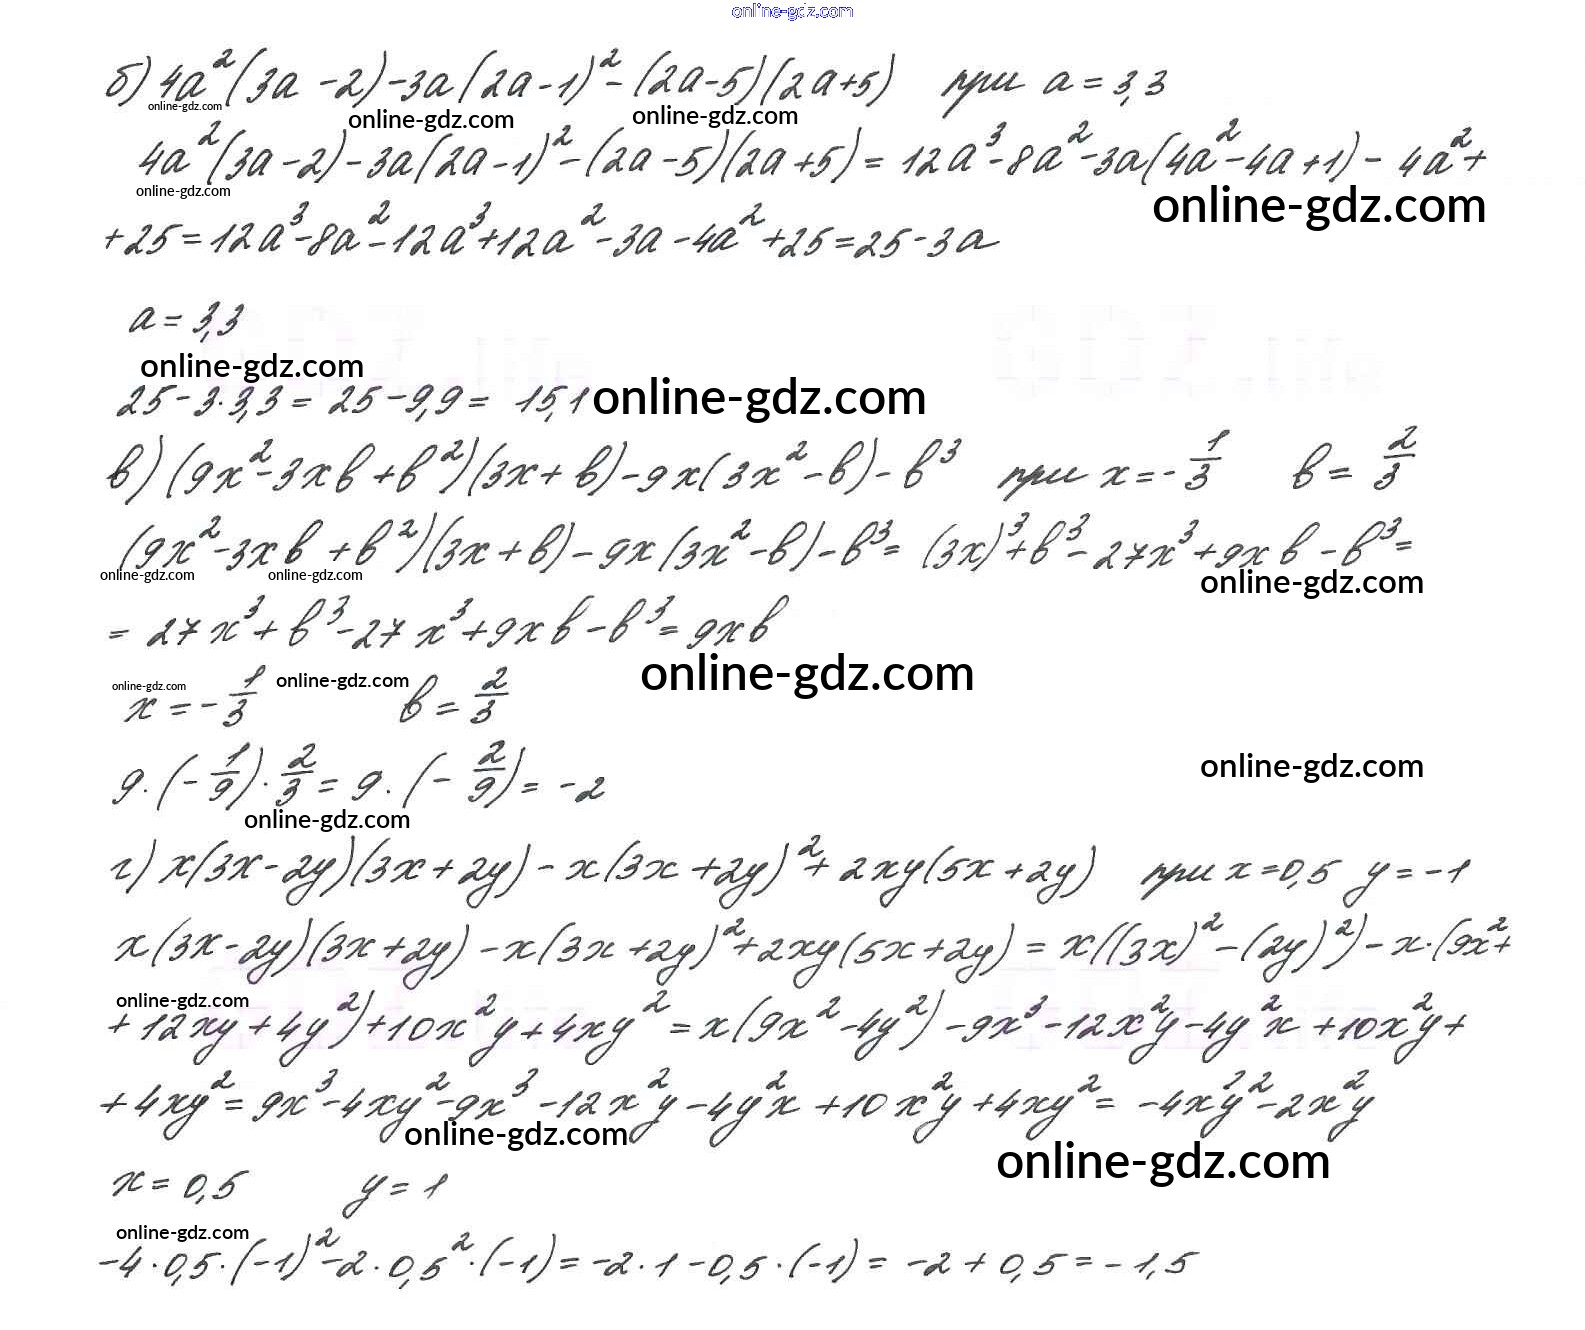 online-gdz.com
б) 4a²(3a-2)-3a(2a-1)²-(2a-5)(2a+5) при a=3,3
online-gdz.com online-gdz.com online-gdz.com
4a²(3a-2)-3a(2a-1)²-(2a-5)(2a+5)= 12a³-8a²-3a(4a²-4a+1)-4a²+
online-gdz.com online-gdz.com
+25=12a³-8a²-12a³+12a²-3a-4a²+25=25-3a
a=3,3
online-gdz.com
25-3·3,3= 25-9,9= 15,1 online-gdz.com
в) (9x²-3xb+b²)(3x+b)-9x(3x²-b)-b³ при x=-1/3 b=2/3
(9x²-3xb+b²)(3x+b)-9x(3x²-b)-b³= (3x)³+b³-27x³+9xb-b³=
online-gdz.com online-gdz.com online-gdz.com
= 27x³+b³-27x³+9xb-b³=9xb
online-gdz.com online-gdz.com online-gdz.com
x=-1/3 b=2/3
9·(-1/9)·2/3=9·(-2/9)=-2 online-gdz.com
online-gdz.com
г) x(3x-2y)(3x+2y)-x(3x+2y)²+2xy(5x+2y) при x=0,5 y=-1
x(3x-2y)(3x+2y)-x(3x+2y)²+2xy(5x+2y)= x((3x)²-(2y)²)-x·(9x²+
online-gdz.com
+12xy+4y²)+10x²y+4xy²=x(9x²-4y²)-9x³-12x²y-4y²x+10x²y+
+4xy²=9x³-4xy²-9x³-12x²y-4y²x+10x²y+4xy²= -4xy²-2x²y
online-gdz.com online-gdz.com
x=0,5 y=1
online-gdz.com
-4·0,5·(-1)²-2·0,5²·(-1)=-2·1-0,5·(-1)= -2+0,5=-1,5